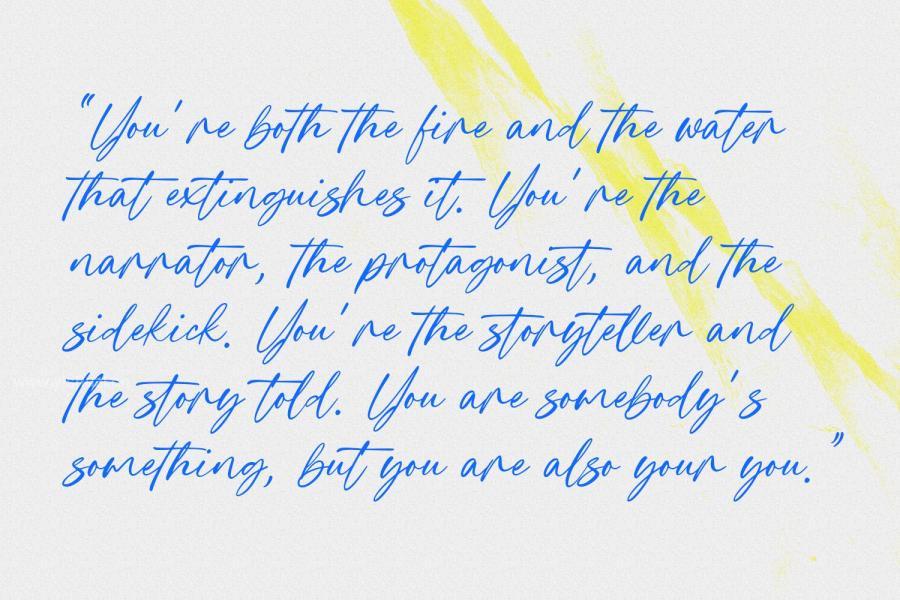 "You're both the fire and the water
that extinguishes it. You're the
narrator, the protagonist, and the
sidekick. You're the storyteller and
the story told. You are somebody's
something, but you are also your you."